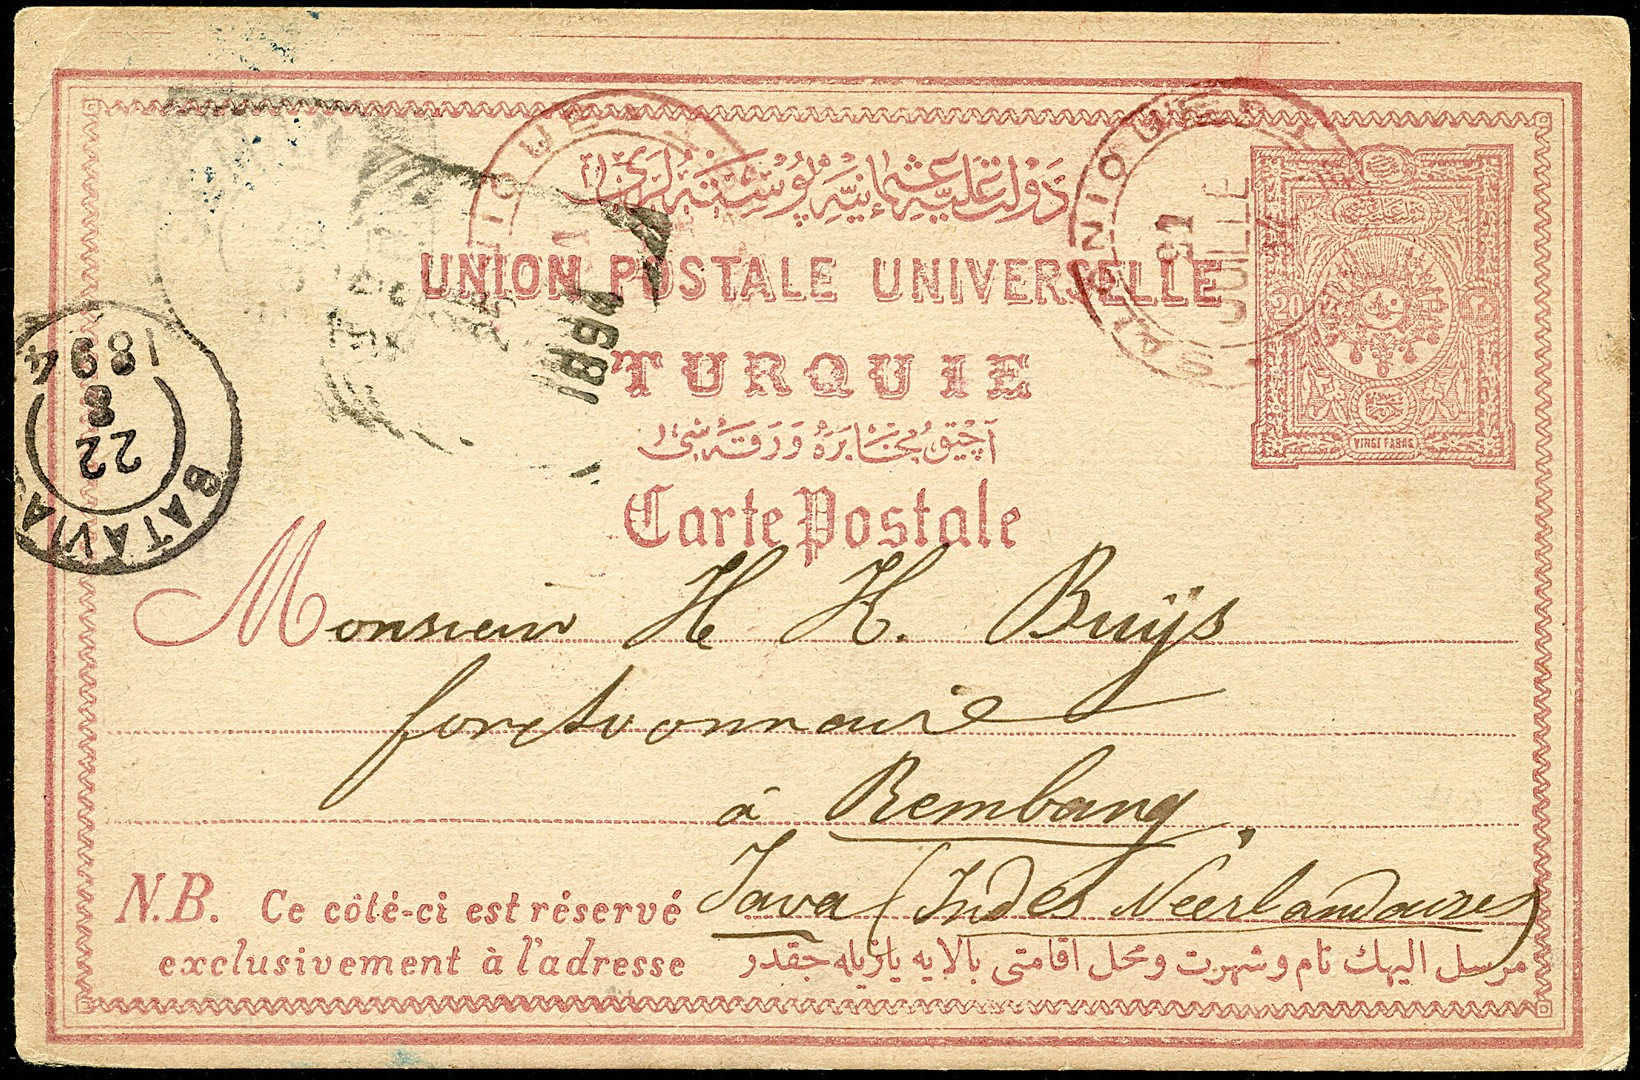 دولت علیهٔ عثمانیه پوسته لری
UNION POSTALE UNIVERSELLE
TURQUIE
آچیق مخابره ورقه سی
Carte Postale
20
VINGT PARAS
SALONIQUE
1894
BATAVIA
22
8
1894
Monsieur H H. Buijs
fonctionnaire
à Rembang.
Java (Indes Néerlandaises)
N.B. Ce côté-ci est réservé
exclusivement à l'adresse
مرسل الیهك نام و شهرت و محل اقامتی بالایه یازیله جقدر